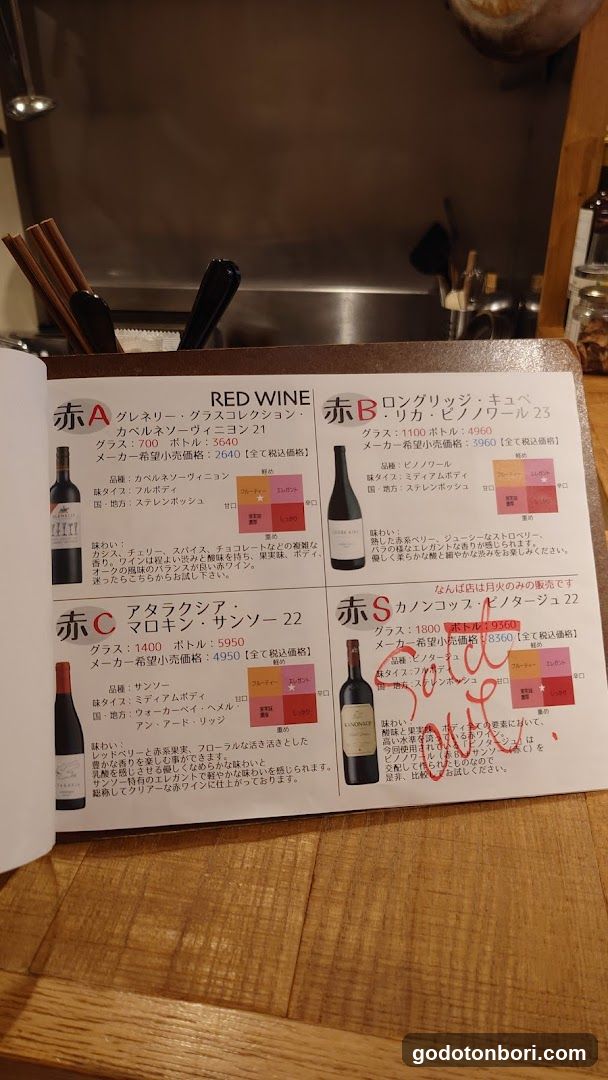 RED WINE
赤A グレネリー・グラスコレクション・
カベルネソーヴィニヨン 21
グラス：700 ボトル：3640
メーカー希望小売価格：2640【全て税込価格】
品種：カベルネソーヴィニョン
味タイプ：フルボディ
国・地方：ステレンボッシュ
軽め
フルーティー
エレガント
甘口
辛口
果実味
濃厚
しっかり
重め
味わい：
カシス、チェリー、スパイス、チョコレートなどの複雑な
香り。ワインは程よい渋みと酸味を持ち、果実味、ボディ、
オークの風味のバランスが良い赤ワイン。
迷ったらこちらからお試し下さい。
赤B ロングリッジ・キュベ
・リカ・ピノノワール 23
グラス：1100 ボトル：4960
メーカー希望小売価格：3960【全て税込価格】
品種：ピノノワール
味タイプ：ミディアムボディ
国・地方：ステレンボッシュ
軽め
フルーティー
エレガント
甘口
辛口
果実味
濃厚
しっかり
重め
味わい：
熟した赤系ベリー、ジューシーなストロベリー、
バラの様なエレガントな香りが感じられます。
優しく柔らかな酸と細やかな渋みをお楽しみください。
赤C アタラクシア・
マロキン・サンソー 22
グラス：1400 ボトル：5950
メーカー希望小売価格：4950【全て税込価格】
品種：サンソー
味タイプ：ミディアムボディ
国・地方：ウォーカーベイ・ヘメル・
アン・アード・リッジ
軽め
フルーティー
エレガント
甘口
辛口
果実味
濃厚
しっかり
重め
味わい：
レッドベリーと赤系果実、フローラルな活き活きとした
豊かな香りを楽しむ事ができます。
乳酸を感じさせる優しくなめらかな味わいと
サンソー特有のエレガントで軽やかな味わいを感じられます。
総称してクリアーな赤ワインに仕上がっております。
なんば店は月火のみの販売です
赤S カノンコップ・ピノタージュ 22
グラス：1800 ボトル：9360
メーカー希望小売価格：8360【全て税込価格】
品種：ピノタージュ
味タイプ：フルボディ
国・地方：ステレンボッシュ
軽め
フルーティー
エレガント
甘口
辛口
果実味
濃厚
しっかり
重め
味わい：
酸味と果実味、ボディ全ての要素において、
高い水準を誇る赤ワイン。
今回使用されているピノタージュは
ピノノワール（赤B）とサンソー（赤C）を
交配して作られたものなので
是非、比較してお試しください。
Sold
out.
KANONKOP
godotonbori.com